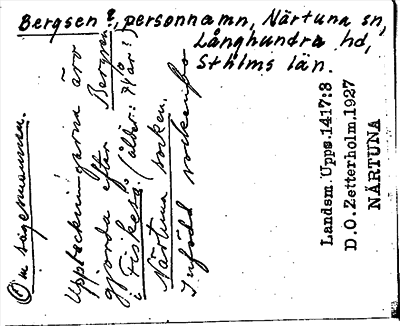 Bergsen?, personnamn, Närtuna sn,
Långhundra hd,
Sthlms län.
Om sägesmannen.
Uppteckningarna äro
gjorda efter Bergsen
i Fiskesä. (ålder: 74 år!)
Närtuna socken.
Infödd sockenbo
Landsm. Upps. 1417:3
D.O. Zetterholm, 1927
NÄRTUNA